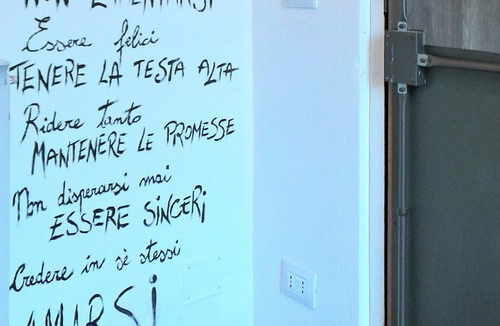 NON LAMENTARSI
Essere felici
TENERE LA TESTA ALTA
Ridere tanto
MANTENERE LE PROMESSE
Non disperarsi mai
ESSERE SINCERI
Credere in sè stessi
AMARSI